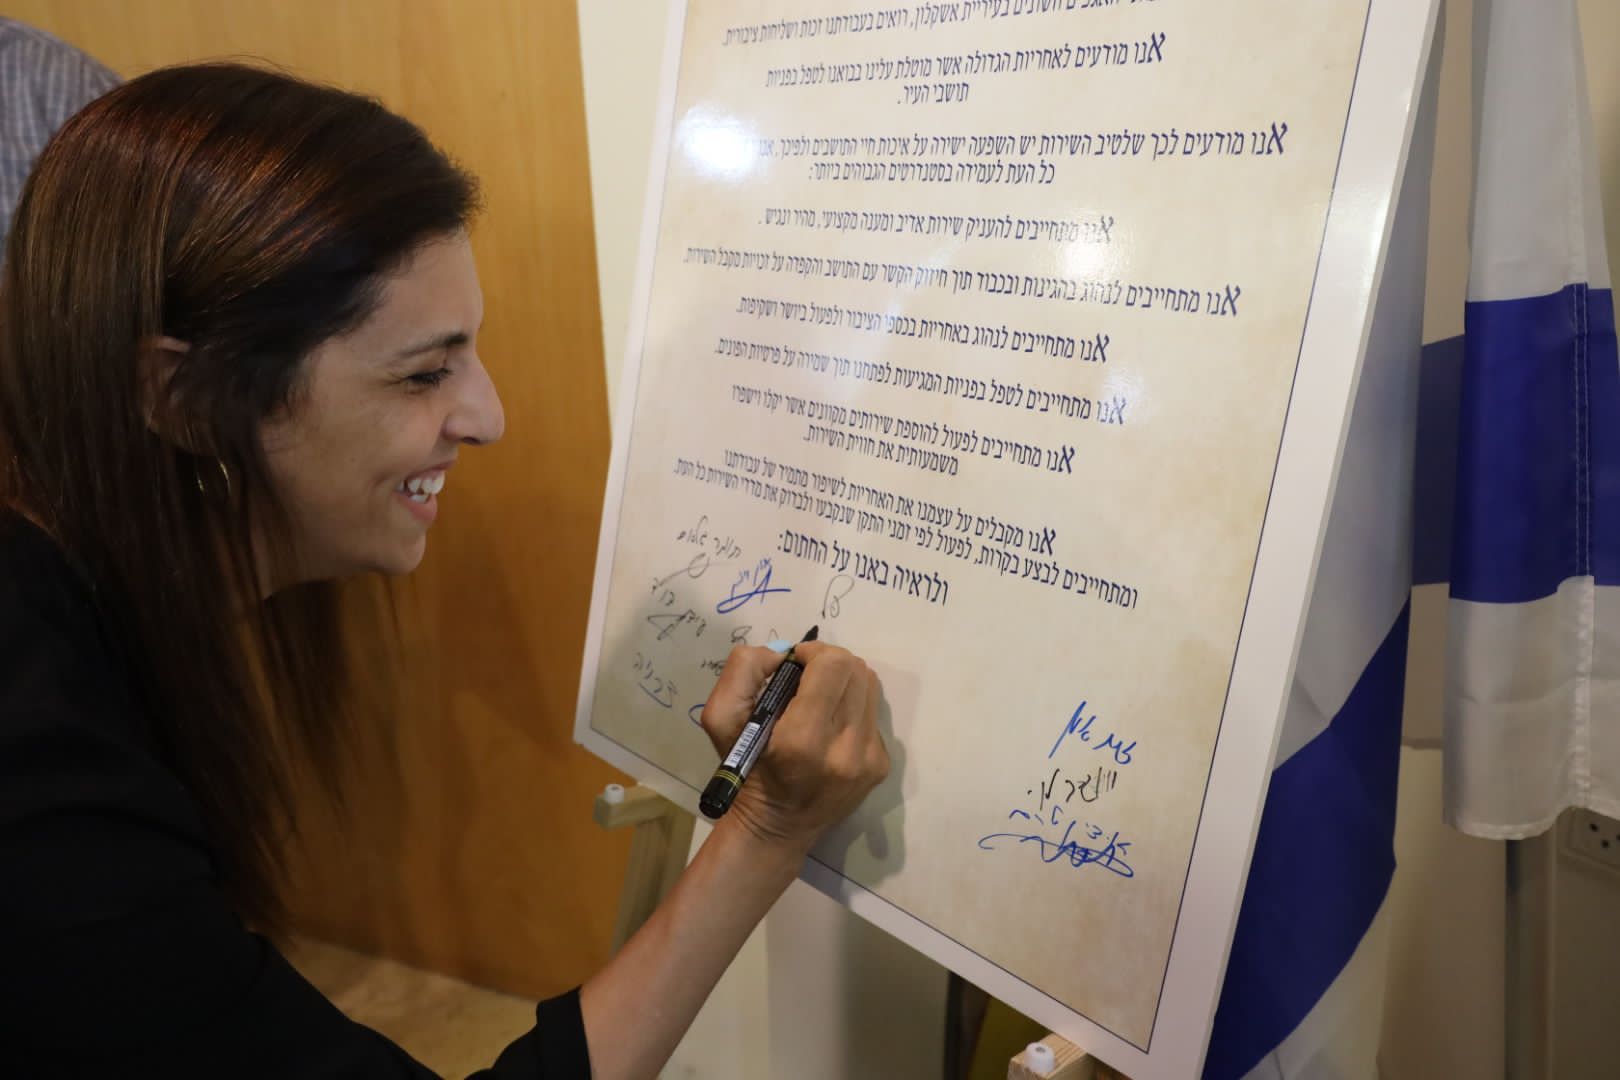 האגפים השונים בעיריית אשקלון, רואים בעבודתנו זכות ושליחות ציבורית.
אנו מודעים לאחריות הגדולה אשר מוטלת עלינו בבואנו לטפל בפניות
תושבי העיר.
אנו מודעים לכך שלטיב השירות יש השפעה ישירה על איכות חיי התושבים ולפיכך,
כל העת לעמידה בסטנדרטים הגבוהים ביותר:
אנו מתחייבים להעניק שירות אדיב ומענה מקצועי, מהיר ונגיש.
אנו מתחייבים לנהוג בהגינות ובכבוד תוך חיזוק הקשר עם התושב והקפדה על זכויות מקבל השירות.
אנו מתחייבים לנהוג באחריות בכספי הציבור ולפעול ביושר ושקיפות.
אנו מתחייבים לטפל בפניות המגיעות לפתחנו תוך שמירה על פרטיות הפונים.
אנו מתחייבים לפעול להוספת שירותים מקוונים אשר יקלו וישפרו
משמעותית את חווית השירות.
אנו מקבלים על עצמנו את האחריות לשיפור מתמיד של עבודתנו
ומתחייבים לבצע בקרות, לפעול לפי זמני התקן שנקבעו ולבדוק את מדדי השירות כל העת.
ולראיה באנו על החתום: